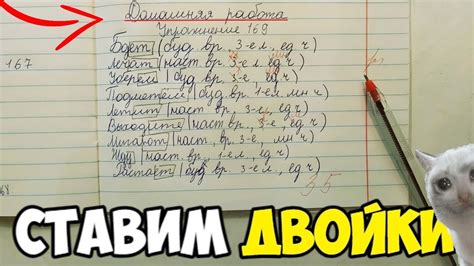 Домашняя работа
Упражнение 169
167
Бдет (буд. вр., 3-е л., ед. ч)
Лежат (наст. вр., 3-е л., ед. ч)
Уберём (буд. вр., 3-е л., ед. ч)
Подметём (буд. вр., 1-е л. мн ч)
Летит (наст. вр., 3-е, ед ч)
Выходите (наст. вр., 3-е, ед ч)
Мигают (наст. вр., 3-е, мн ч)
Жду (наст. вр., 1-е л., ед ч)
Растает (буд. вр. 3-е л., ед ч)
СТАВИМ ДВОЙКИ